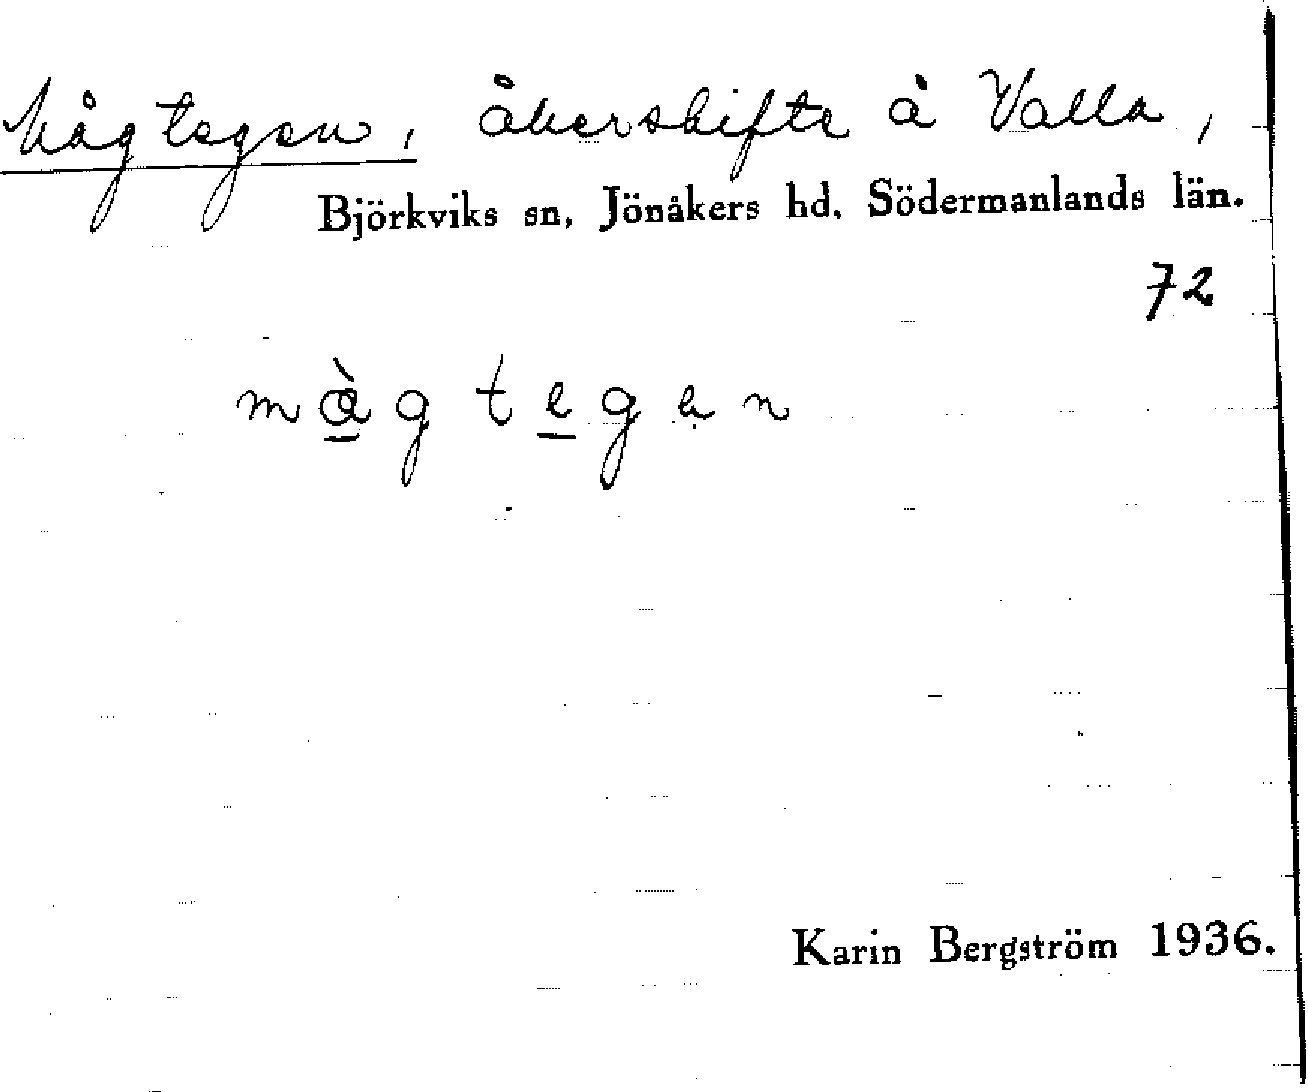 Mågtegen, åkerskifte å Valla,
Björkviks sn, Jönåkers hd. Södermanlands län.
72
må̀gtegen
Karin Bergström 1936.